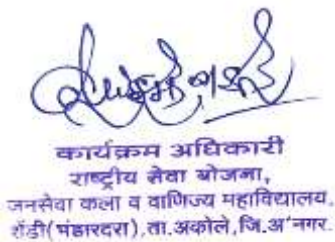 कार्यक्रम अधिकारी
राष्ट्रीय सेवा योजना,
जनसेवा कला व वाणिज्य महाविद्यालय.
शेंडी(भंडारदरा),ता.अकोले,जि.अ'नगर